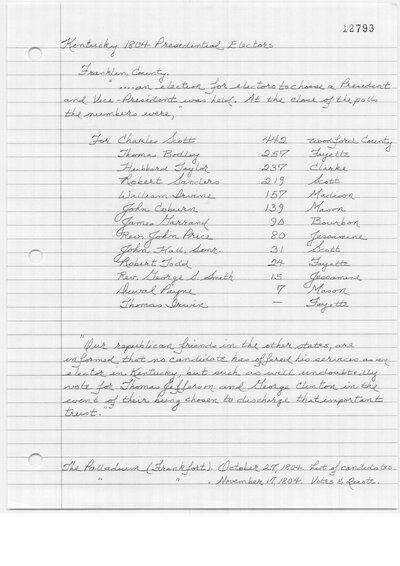 12793
Kentucky 1804 Presidential Electors
Franklin County.
"....an election for electors to choose a President
and Vice-President was held. At the close of the polls
the numbers were,"
For Charles Scott 442 Woodford County
Thomas Bodley 257 Fayette
Hubbard Taylor 237 Clarke
Robert Sanders 219 Scott
William Irvine 157 Madison
John Coburn 139 Mason
James Garrard 90 Bourbon
Rev. John Price 80 Jessamine
John Hall, Senr. 31 Scott
Robert Todd 24 Fayette
Rev. George S. Smith 15 Jessamine
Duval Payne 7 Mason
Thomas Irwin — Fayette
"Our republican friends in the other states, are
informed that no candidate has offered his services as an
elector in Kentucky, but such as will undoubtedly
vote for Thomas Jefferson and George Clinton in the
event of their being chosen to discharge that important
trust."
The Palladium (Frankfort). October 27, 1804. List of candidates
" " . November 17, 1804. Votes & Quote.